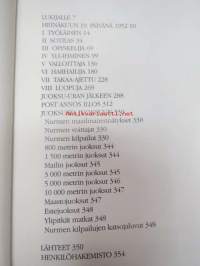 LUKIJALLE 7
HEINÄKUUN 19. PÄIVÄNÄ 1952 10
I TYÖLÄINEN 14
II SOTILAS 34
III OPISKELIJA 69
IV YLI-IHMINEN 99
V VALLOITTAJA 130
VI HARHAILIJA 180
VII TAKAA-AJETTU 228
VIII LUOPUJA 269
JUOKSU-URAN JÄLKEEN 288
POST ANNOS ILLOS 312
JUOKSU
Nurmen maailmanennätykset 328
Nurmen voittaja
Nurmen kilpailut 330
800 metrin juoksut 344
1 500 metrin juoksut 344
Mailin juoksut 345
3 000 metrin juoksut 345
5 000 metrin juoksut 346
10 000 metrin juoksut 347
Maastojuoksut 348
Estejuoksut 348
Ylipitkät matkat 348
Nurmen kilpailujen katsojaluvut 348
LÄHTEET 350
HENKILÖHAKEMISTO 354